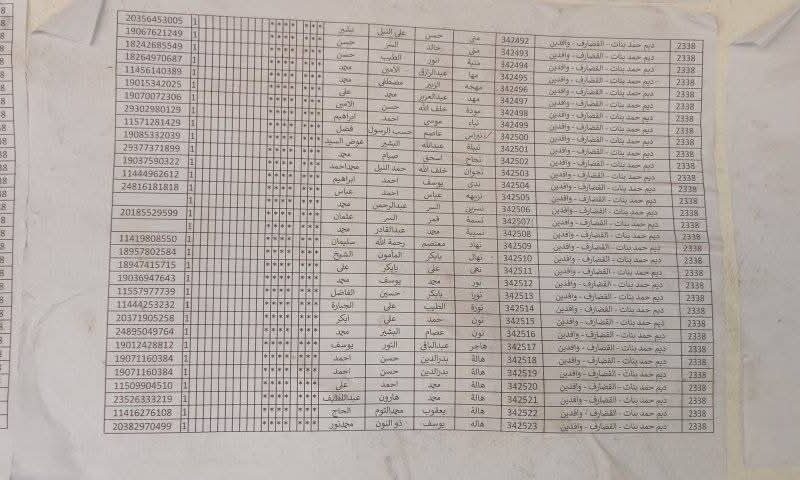 2338 ديم حمد بنات - القضارف - وافدين 342492 منى حسن على النيل بشير 1 20356453005
2338 ديم حمد بنات - القضارف - وافدين 342493 منى خالد السر حسن 1 19067621249
2338 ديم حمد بنات - القضارف - وافدين 342494 منية نور الطيب حسن 1 18242685549
2338 ديم حمد بنات - القضارف - وافدين 342495 مها عبدالرازق الأمين محمد 1 18264970687
2338 ديم حمد بنات - القضارف - وافدين 342496 مهجه الزبير مصطفى محمد 1 11456140389
2338 ديم حمد بنات - القضارف - وافدين 342497 مهد عبدالعزيز محمد على 1 19015342025
2338 ديم حمد بنات - القضارف - وافدين 342498 مودة خلف الله حسن الامين 1 19070072306
2338 ديم حمد بنات - القضارف - وافدين 342499 موسى احمد ابراهيم 1 29302980129
2338 ديم حمد بنات - القضارف - وافدين 342500 نبراس عاصم حسب الرسول فضل 1 11571281429
2338 ديم حمد بنات - القضارف - وافدين 342501 نبيلة عبدالله البشير عوض السيد 1 19085332039
2338 ديم حمد بنات - القضارف - وافدين 342502 نجاح اسحق صيام محمد 1 29377371899
2338 ديم حمد بنات - القضارف - وافدين 342503 نجوان خلف الله حمد النيل محمداحمد 1 19037590322
2338 ديم حمد بنات - القضارف - وافدين 342504 ندى يوسف احمد ابراهيم 1 11444962612
2338 ديم حمد بنات - القضارف - وافدين 342505 نزيهه عباس احمد عباس 1 24816181818
2338 ديم حمد بنات - القضارف - وافدين 342506 نسرين السر عبدالرحمن محمد 1
2338 ديم حمد بنات - القضارف - وافدين 342507 نسمة قمر السر عثمان 1 20185529599
2338 ديم حمد بنات - القضارف - وافدين 342508 نسيبة محمد عبدالقادر محمد 1
2338 ديم حمد بنات - القضارف - وافدين 342509 نهاد معتصم رحمة الله سليمان 1 11419808550
2338 ديم حمد بنات - القضارف - وافدين 342510 نهال بابكر المأمون الشيخ 1 18957802584
2338 ديم حمد بنات - القضارف - وافدين 342511 نهى على بابكر على 1 18947415715
2338 ديم حمد بنات - القضارف - وافدين 342512 نور محمد يوسف محمد 1 19036947643
2338 ديم حمد بنات - القضارف - وافدين 342513 نورا بابكر حسين الفاضل 1 11557977739
2338 ديم حمد بنات - القضارف - وافدين 342514 نورة الطيب على الجبارة 1 11444253232
2338 ديم حمد بنات - القضارف - وافدين 342515 نون حمد على ابكر 1 20371905258
2338 ديم حمد بنات - القضارف - وافدين 342516 نون عصام البشير محمد 1 24895049764
2338 ديم حمد بنات - القضارف - وافدين 342517 هاجر عبدالباقى النور يوسف 1 19012428812
2338 ديم حمد بنات - القضارف - وافدين 342518 هالة بدرالدين حسن احمد 1 19071160384
2338 ديم حمد بنات - القضارف - وافدين 342519 هالة بدرالدين حسن احمد 1 19071160384
2338 ديم حمد بنات - القضارف - وافدين 342520 هالة محمد احمد على 1 11509904510
2338 ديم حمد بنات - القضارف - وافدين 342521 هالة محمد هارون عبداللطيف 1 23526333219
2338 ديم حمد بنات - القضارف - وافدين 342522 هالة يعقوب محمدالتوم الحاج 1 11416276108
2338 ديم حمد بنات - القضارف - وافدين 342523 هاله يوسف ذو النون محمدنور 1 20382970499